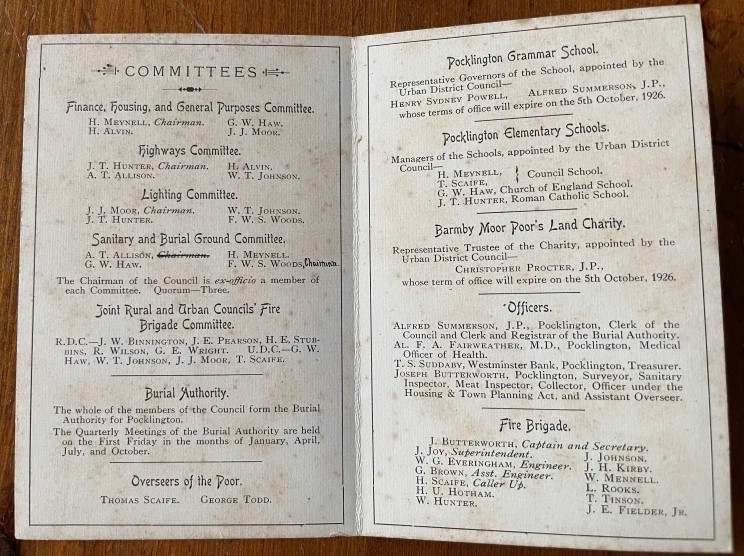 COMMITTEES
Finance, Housing, and General Purposes Committee.
H. MEYNELL, Chairman. G. W. HAW.
H. ALVIN. J. J. MOOR.
Highways Committee.
J. T. HUNTER, Chairman. H. ALVIN.
A. T. ALLISON. W. T. JOHNSON.
Lighting Committee.
J. J. MOOR, Chairman. W. T. JOHNSON.
J. T. HUNTER. F. W. S. WOODS.
Sanitary and Burial Ground Committee.
A. T. ALLISON, Chairman. H. MEYNELL.
G. W. HAW. F. W. S. WOODS, Chairman.
The Chairman of the Council is ex-officio a member of
each Committee. Quorum—Three.
Joint Rural and Urban Councils' Fire
Brigade Committee.
R.D.C.—J. W. BINNINGTON, J. E. PEARSON, H. E. STUB-
BINS, R. WILSON, G. E. WRIGHT. U.D.C.—G. W.
HAW, W. T. JOHNSON, J. J. MOOR, T. SCAIFE.
Burial Authority.
The whole of the members of the Council form the Burial
Authority for Pocklington.
The Quarterly Meetings of the Burial Authority are held
on the First Friday in the months of January, April,
July, and October.
Overseers of the Poor.
THOMAS SCAIFE. GEORGE TODD.
Pocklington Grammar School.
Representative Governors of the School, appointed by the
Urban District Council—
HENRY SYDNEY POWELL, ALFRED SUMMERSON, J.P.,
whose terms of office will expire on the 5th October, 1926.
Pocklington Elementary Schools.
Managers of the Schools, appointed by the Urban District
Council—
H. MEYNELL,
T. SCAIFE, } Council School.
G. W. HAW, Church of England School.
J. T. HUNTER, Roman Catholic School.
Barmby Moor Poor's Land Charity.
Representative Trustee of the Charity, appointed by the
Urban District Council—
CHRISTOPHER PROCTER, J.P.,
whose term of office will expire on the 5th October, 1926.
Officers.
ALFRED SUMMERSON, J.P., Pocklington, Clerk of the
Council and Clerk and Registrar of the Burial Authority.
AL. F. A. FAIRWEATHER, M.D., Pocklington, Medical
Officer of Health.
T. S. SUDDABY, Westminster Bank, Pocklington, Treasurer.
JOSEPH BUTTERWORTH, Pocklington, Surveyor, Sanitary
Inspector, Meat Inspector, Collector, Officer under the
Housing & Town Planning Act, and Assistant Overseer.
Fire Brigade.
J. BUTTERWORTH, Captain and Secretary.
J. JOY, Superintendent. J. JOHNSON.
W. G. EVERINGHAM, Engineer. J. H. KIRBY.
G. BROWN, Asst. Engineer. W. MENNELL.
H. SCAIFE, Caller Up. L. ROOKS.
H. U. HOTHAM. T. TINSON.
W. HUNTER. J. E. FIELDER, JR.